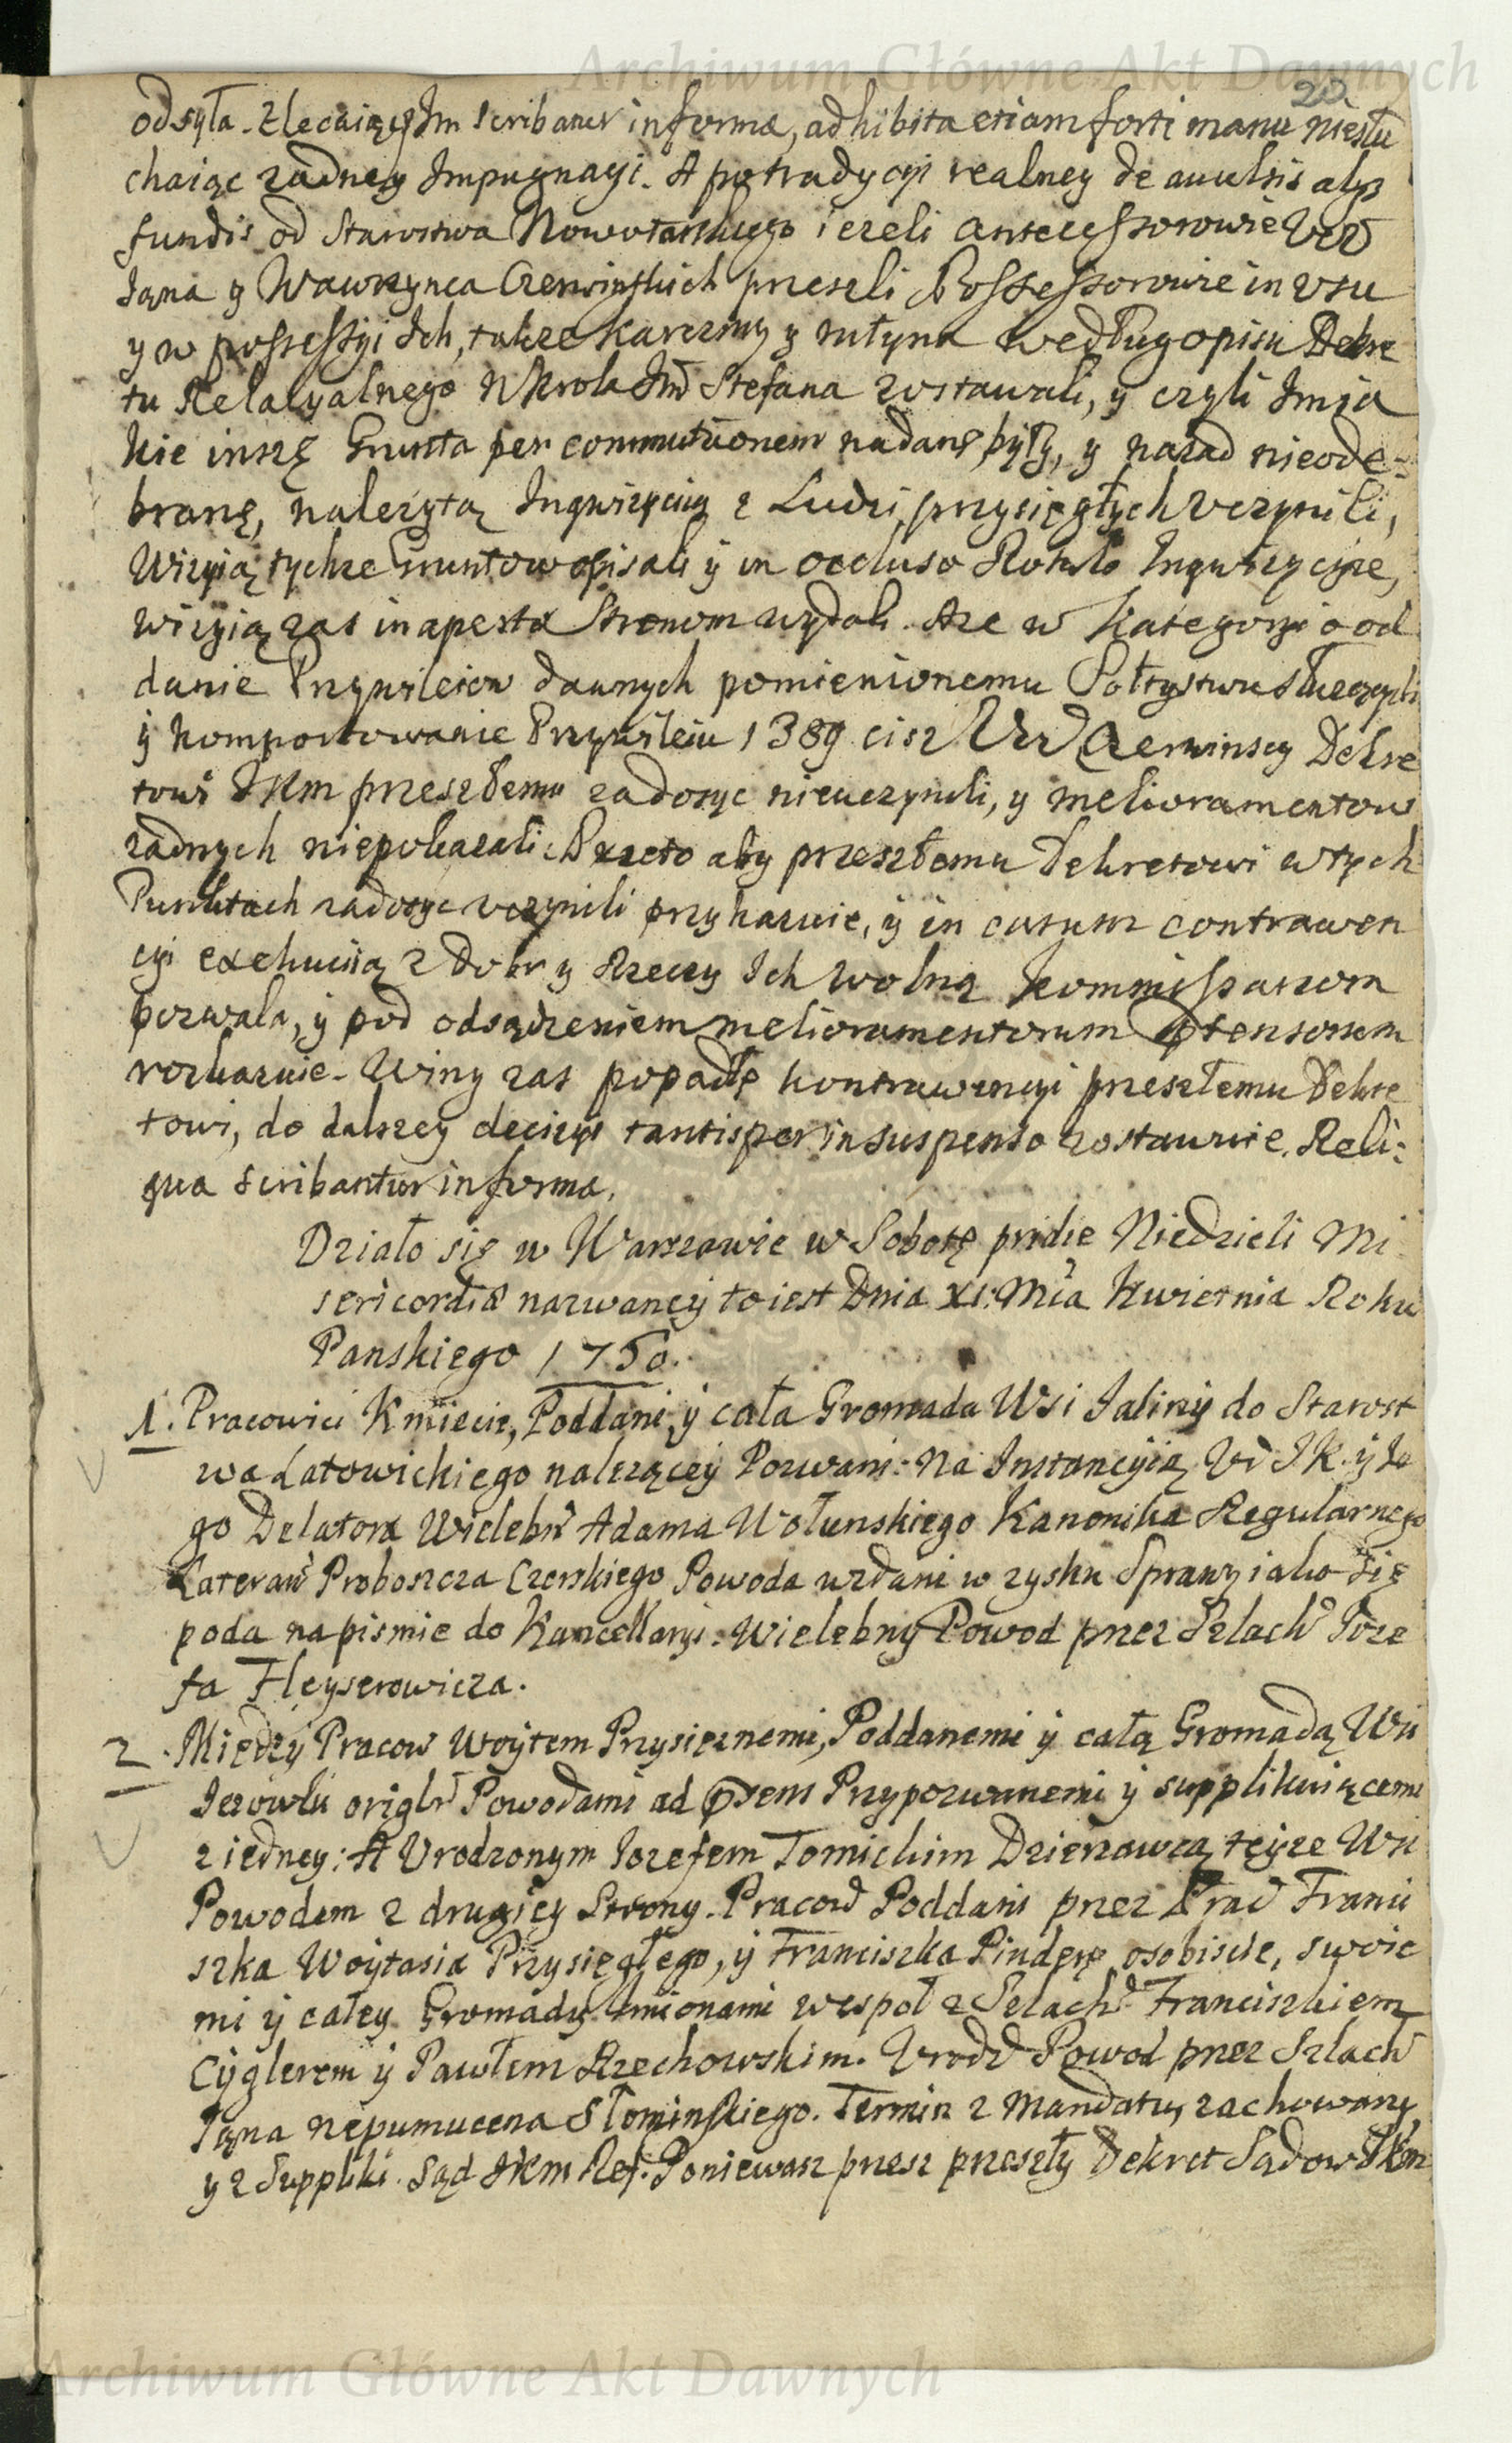 Archiwum Główne Akt Dawnych
20
odsyła. zlecaiąc Im scribatur in forma, adhibita etiam forti manu niesłu
chaiąc zadney Impugnacyi. A po tradycyi realney de avulsis alys
fundis od Starostwa Nowotarskiego iezeli Antecessorowie Urd
Jana y Wawrzynca Czerwinskich przeszli Possessorowie in usu
y w possessyi Ich, takze Karczmy y młyna według opisu Dekre
tu Relacyalnego Nkrola Jm Stefana zostawali, y czyli Im ia
kie inszę Grunta per commutationem nadanę były, y nazad nieode-
branę, nalezytą Inqwizycyią z Ludzi przysięgłych uczynili,
Wizyią tychze Gruntow opisali y in occluso Rotulo Inqwizycyie,
wizyią zas in aperta Stronom wydali. Aze w Kategoryi o od
danie Przywileiow dawnych pomienionemu Sołtystwu słuzących
y komportowanie Przywileiu 1389 cisz Urd Czerwinscy Dekre
towi JKm przeszłemu zadosyc nieuczynili, y melioramentow
zadnych niepokazali. Przeto aby przeszłemu Dekretowi w tych
Punktach zadosyc uczynili przykazuie, y in casum contrawen
cyi exekucyią z Dobr y Rzeczy Ich wolną Kommissarzom
pozwala, y pod odsądzeniem melioramentorum ptensorum
rozkazuie. Winy zas popadłe kontrawencyi przeszłemu Dekre
towi, do dalszey decizyi tantisper in suspenso zostawuie. Reli=
qua scribantur in forma.
Działo się w Warszawie w Sobotę pridie Niedzieli Mi
sericordia nazwaney to iest Dnia XI. Mca Kwietnia Roku
Panskiego 1750.
1. Pracowici Kmiecie, Poddani, y cała Gromada Wsi Jaliny do Starost
wa Latowickiego nalezącey Pozwani: Na Instancyią Ur JK. y Je
go Delatora Wielebn Adama Wołunskiego Kanonika Regularnego
Lateran Proboszcza Czerskiego Powoda wzdani w zysku Sprawy iako się
poda na pismie do Kancellaryi. Wielebny Powod przez Szlach Joze
fa Fleyserowicza.
2. Między Pracow Woytem Przysięznemi, Poddanemi y całą Gromadą Wsi
Jezowki origlr Powodami ad psens Przypozwanemi y supplikuiącemi
z iedney: A Urodzonym Jozefem Tomickim Dzierzawcą teyze Wsi
Powodem z drugiey Strony. Pracow Poddani przez Prac Franci
szka Woytasia Przysięgłego, y Franciszka Pinderę osobiscie, swoie
mi y całey Gromady Imionami wespoł z Szlach Franciszkiem
Cyglerem y Pawłem Rzechowskim. Urodz Powod przez Szlach
Jana nepumucena Słominskiego. Termin z Mandatu zachowany,
y z Suppliki. Sąd JKm Ref. Poniewasz przez przeszły Dekret Sądow JKm
Archiwum Główne Akt Dawnych